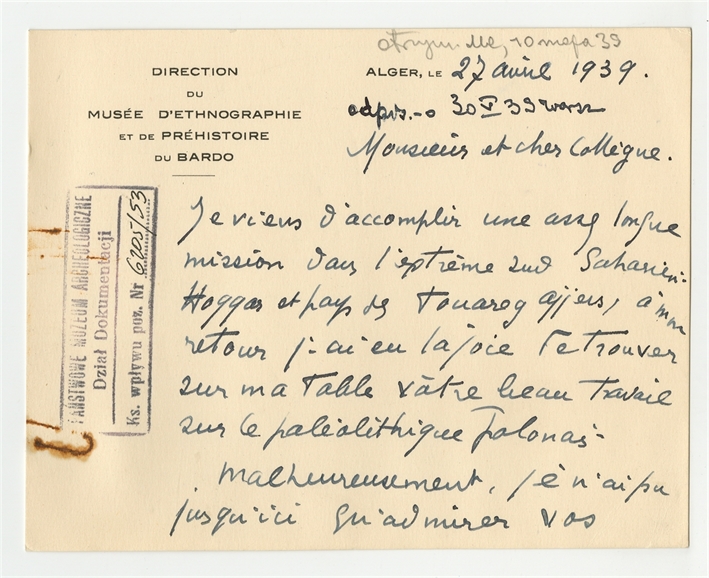 10 maja 39
DIRECTION
DU
MUSÉE D'ETHNOGRAPHIE
ET DE PRÉHISTOIRE
DU BARDO
ALGER, LE 27 avril 1939.
odpis. 30 V 39
Monsieur et cher Collègue.
Je viens d'accomplir une assez longue
mission dans l'extrême sud Saharien:
Hoggar et pays des Touareg Ajjers, à mon
retour j'ai eu la joie de trouver
sur ma table vôtre beau travail
sur le paléolithique polonais-
malheureusement, je n'ai pu
jusqu'ici qu'admirer vos
PAŃSTWOWE MUZEUM ARCHEOLOGICZNE
Dział Dokumentacji
Ks. wpływu poz. Nr 6205/53